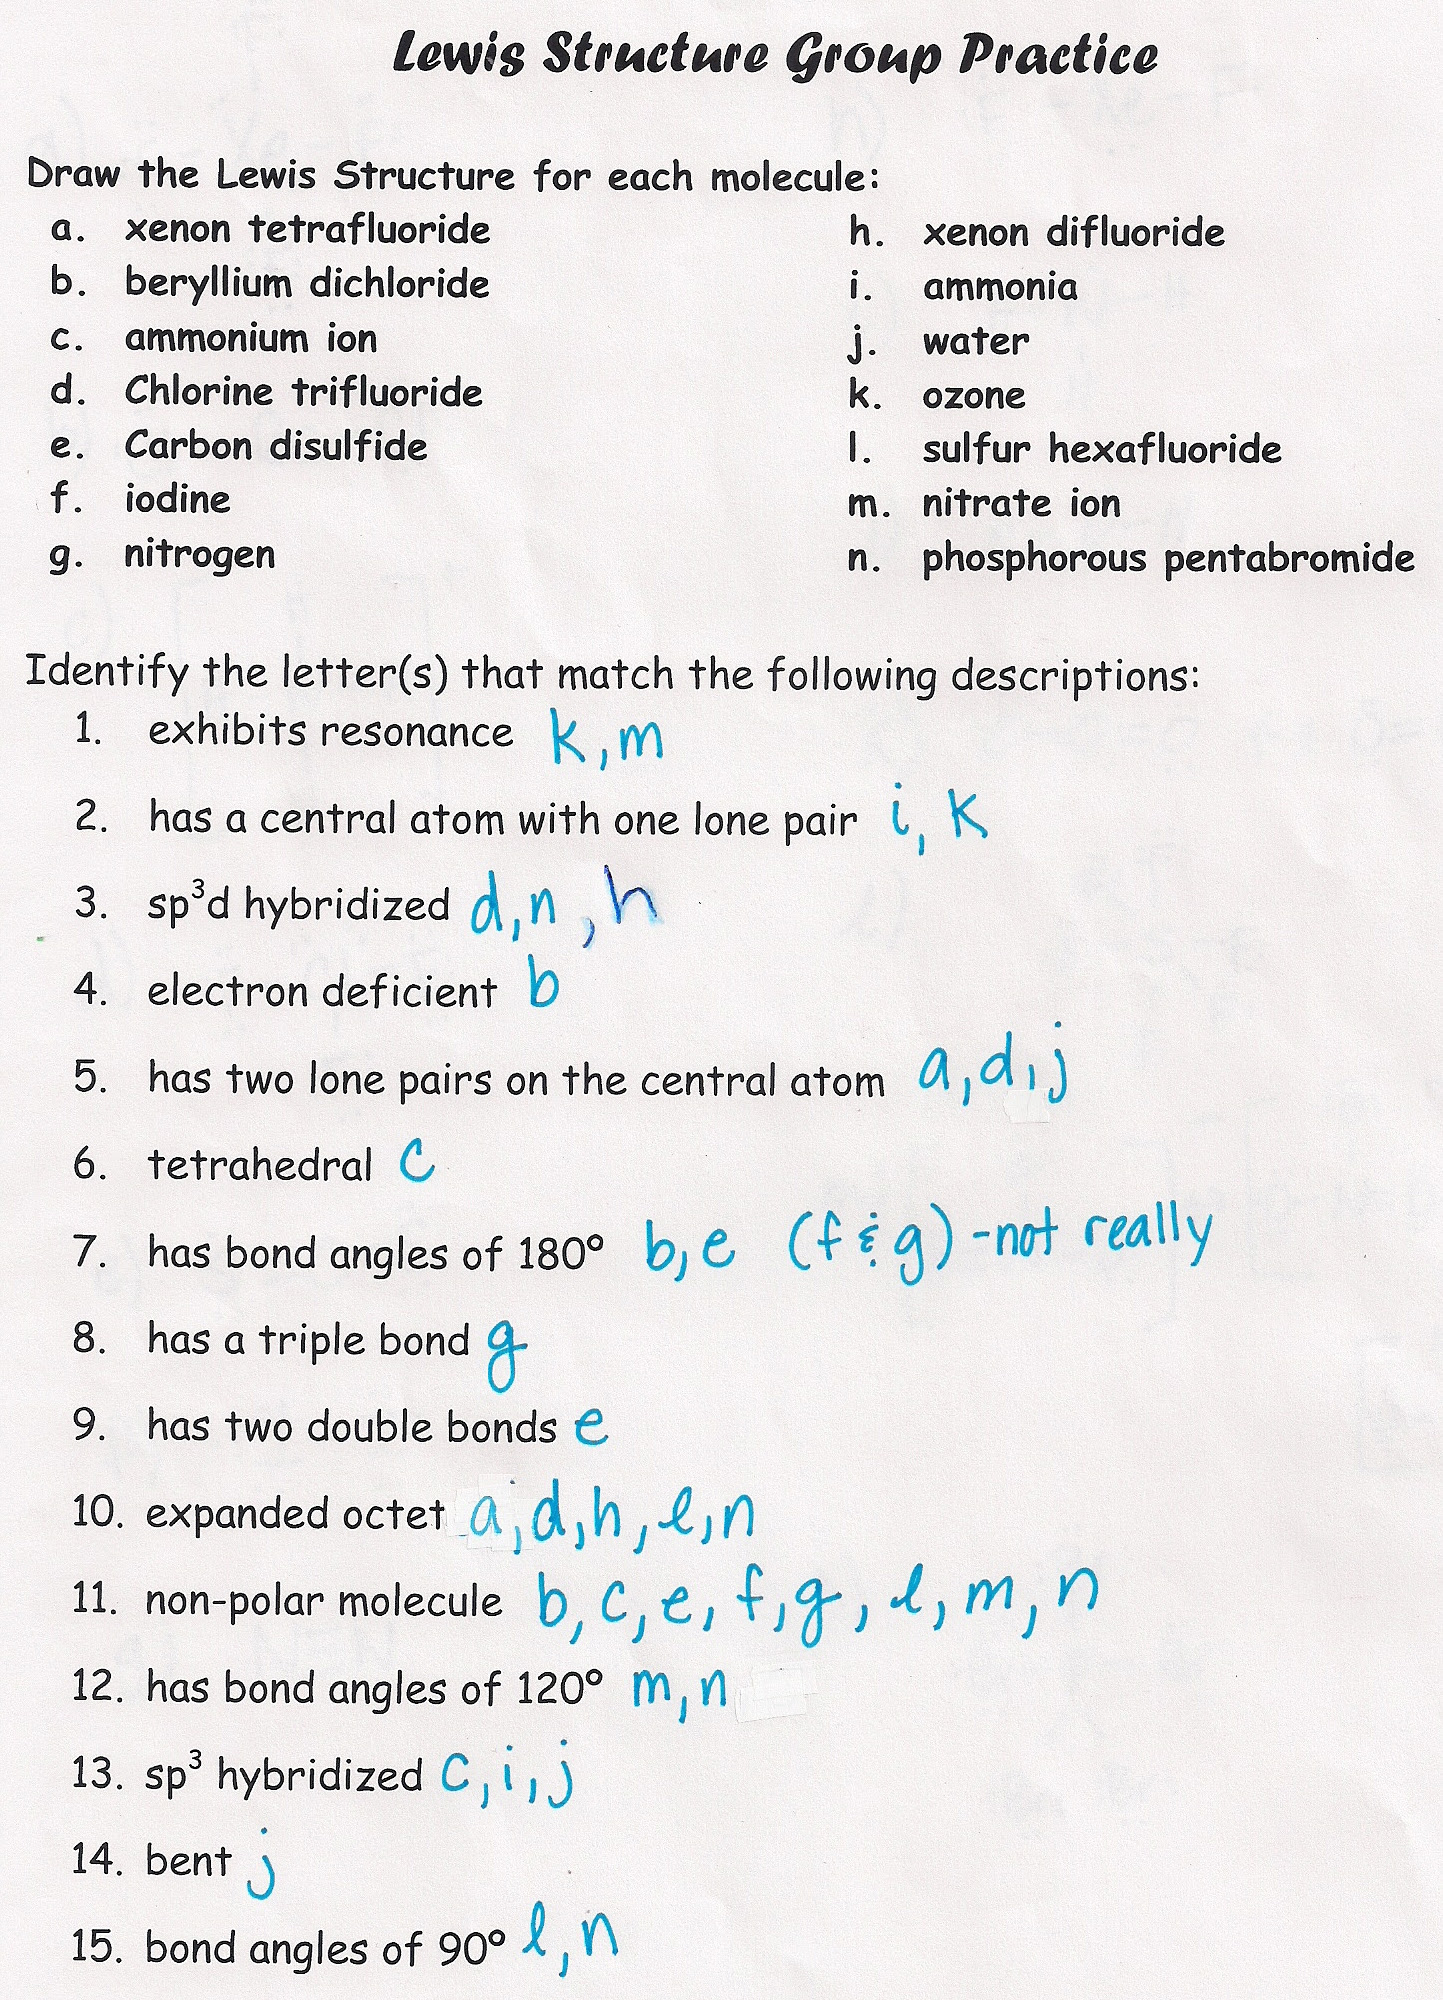 Lewis Structure Group Practice
Draw the Lewis Structure for each molecule:
a. xenon tetrafluoride
b. beryllium dichloride
c. ammonium ion
d. Chlorine trifluoride
e. Carbon disulfide
f. iodine
g. nitrogen
h. xenon difluoride
i. ammonia
j. water
k. ozone
l. sulfur hexafluoride
m. nitrate ion
n. phosphorous pentabromide
Identify the letter(s) that match the following descriptions:
1. exhibits resonance k, m
2. has a central atom with one lone pair i, k
3. sp³d hybridized d, n, h
4. electron deficient b
5. has two lone pairs on the central atom a, d, j
6. tetrahedral c
7. has bond angles of 180° b, e (f & g) - not really
8. has a triple bond g
9. has two double bonds e
10. expanded octet a, d, h, l, n
11. non-polar molecule b, c, e, f, g, l, m, n
12. has bond angles of 120° m, n
13. sp³ hybridized c, i, j
14. bent j
15. bond angles of 90° l, n